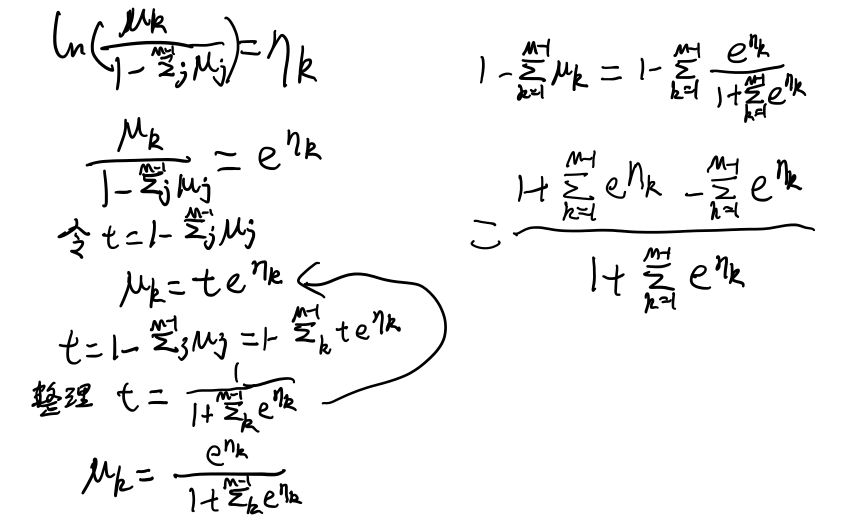 ln(μ_k / (1 - Σ_j^{M-1} μ_j)) = η_k
μ_k / (1 - Σ_j^{M-1} μ_j) = e^{η_k}
令 t = 1 - Σ_j^{M-1} μ_j
μ_k = t e^{η_k}
t = 1 - Σ_j^{M-1} μ_j = 1 - Σ_k^{M-1} t e^{η_k}
整理 t = 1 / (1 + Σ_k^{M-1} e^{η_k})
μ_k = e^{η_k} / (1 + Σ_k^{M-1} e^{η_k})
1 - Σ_{k=1}^{M-1} μ_k = 1 - Σ_{k=1}^{M-1} e^{η_k} / (1 + Σ_{k=1}^{M-1} e^{η_k})
= (1 + Σ_{k=1}^{M-1} e^{η_k} - Σ_{k=1}^{M-1} e^{η_k}) / (1 + Σ_{k=1}^{M-1} e^{η_k})